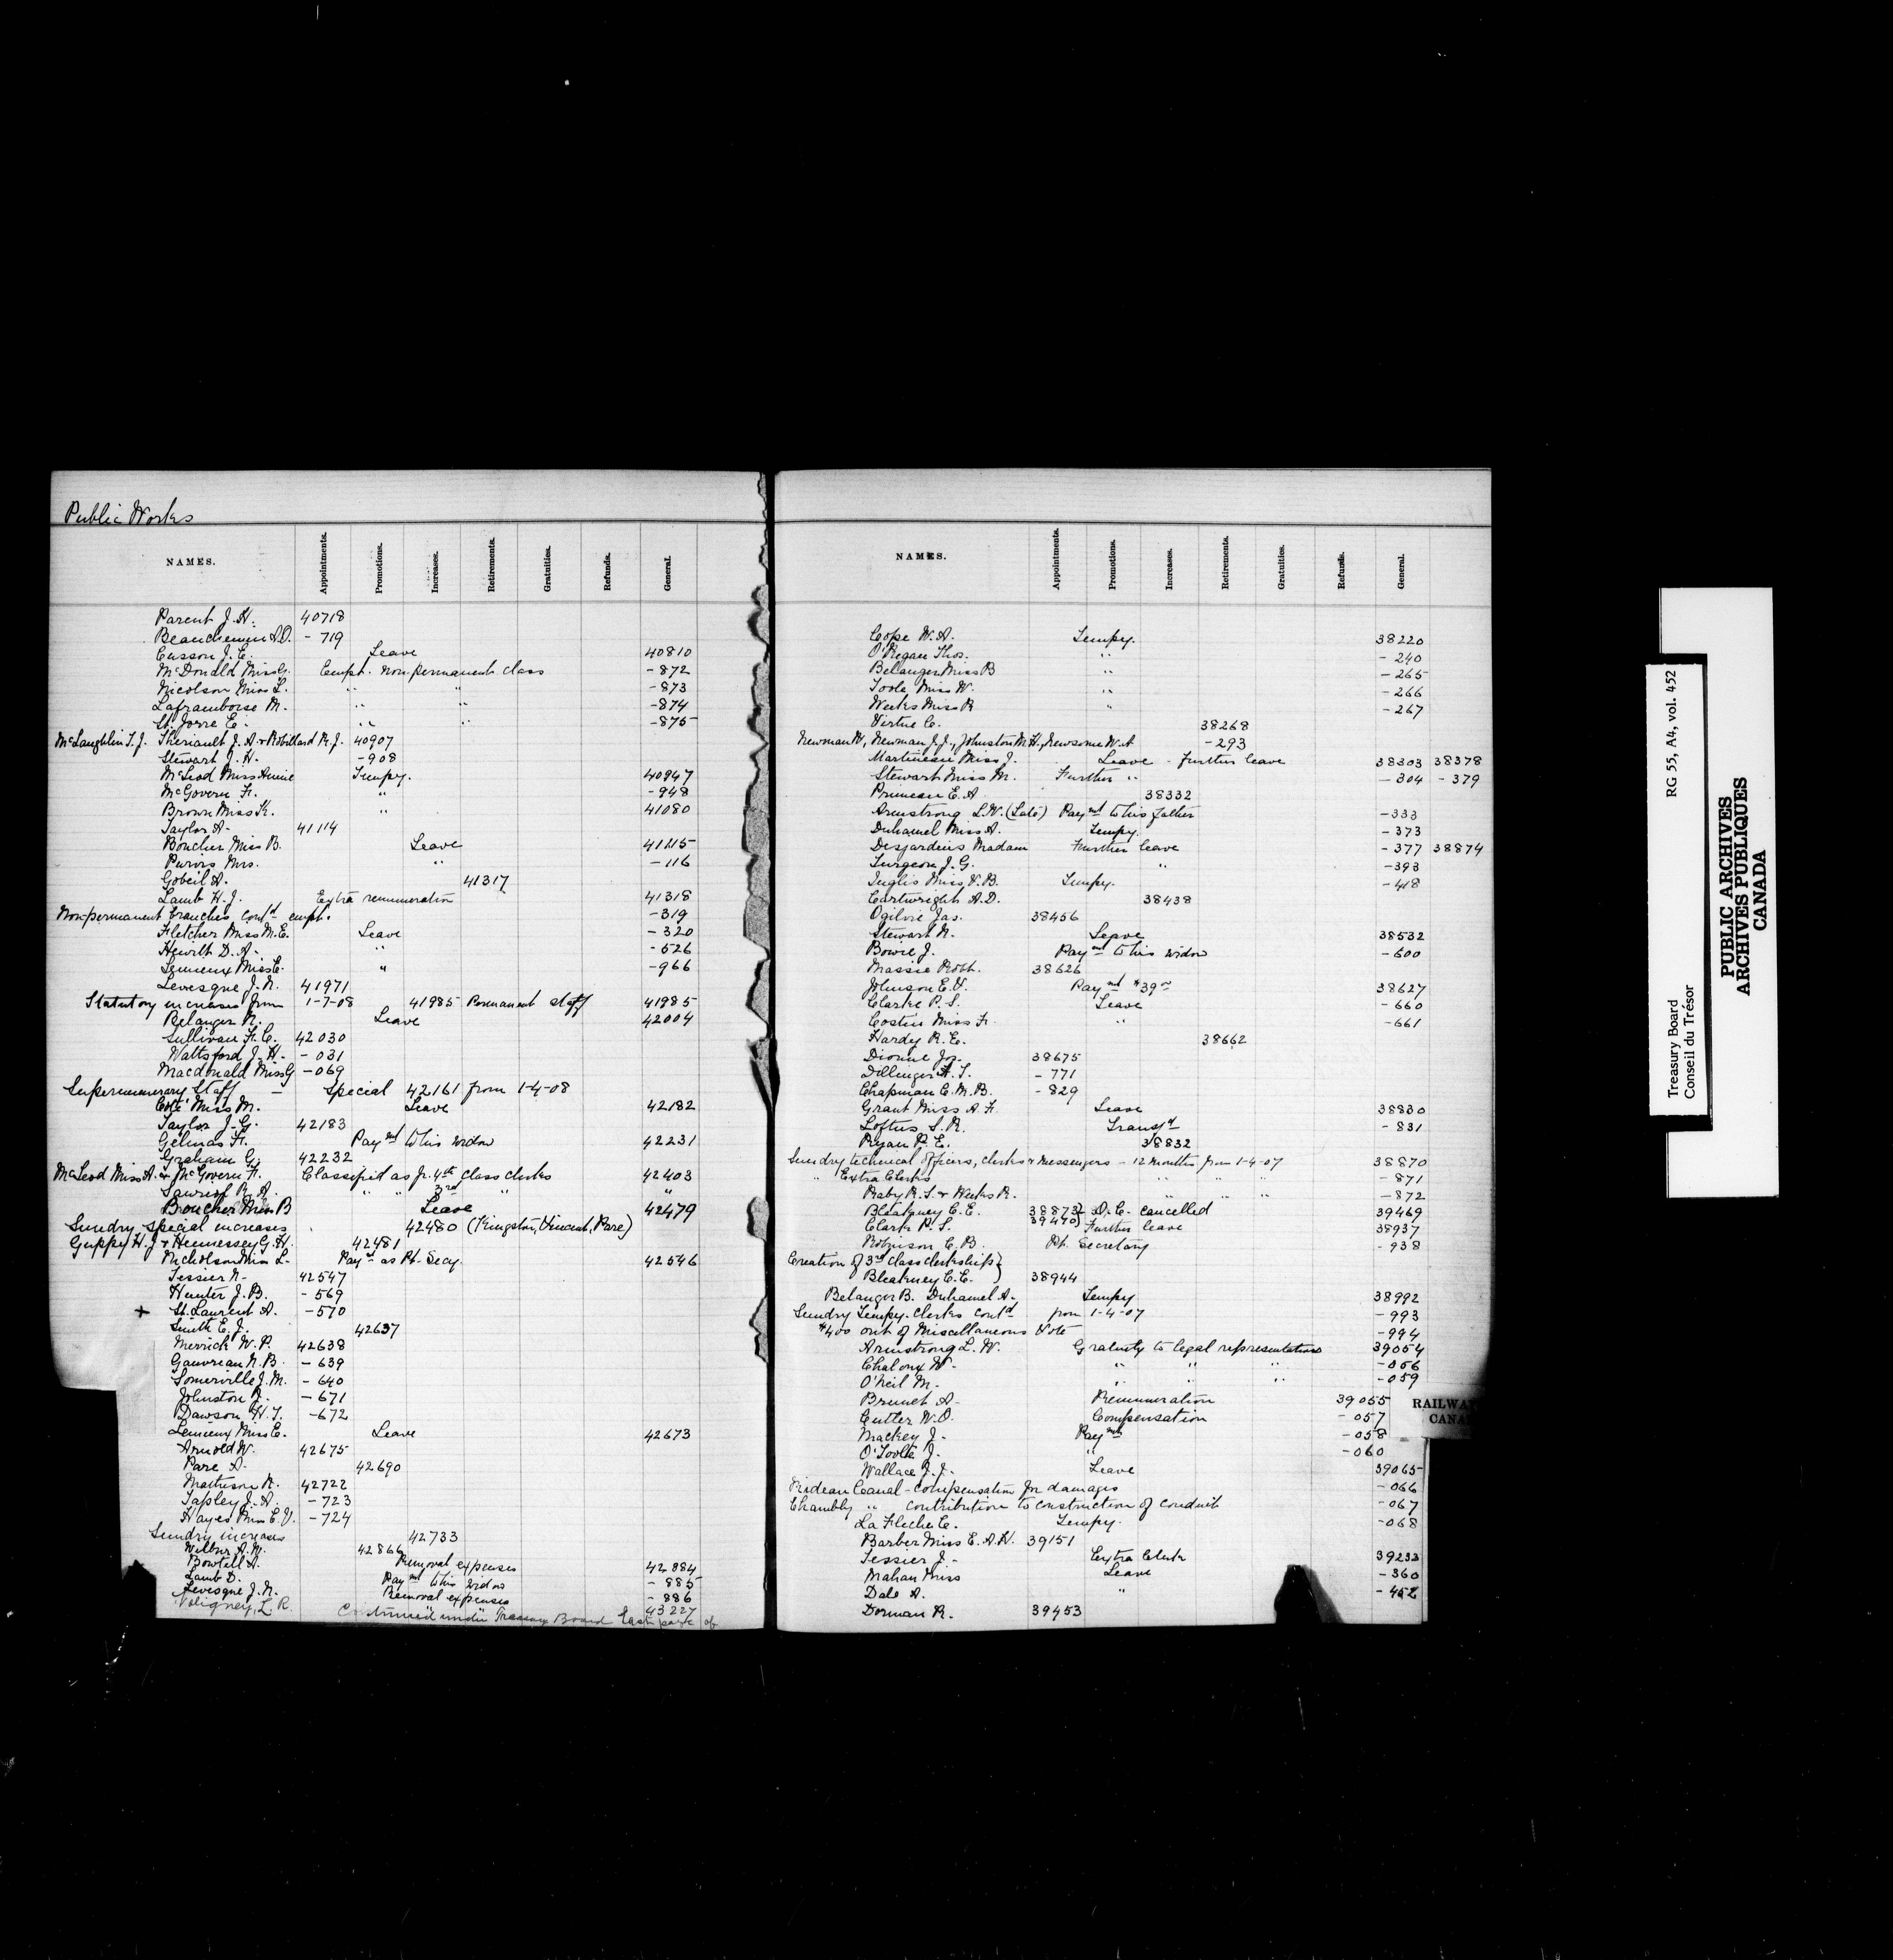 Public Works
NAMES. Appointments. Promotions. Increases. Retirements. Gratuities. Refunds. General.
Parent J. H. 40718
Beauchemin A.O. - 719
Casson J. E. Leave 40810
McDonald Miss G. Empt. non-permanent class - 872
Nicolson Miss L. " " - 873
Laframboise M. " " - 874
St. Jorre E. " " - 875
McLaughlin T. J. Theriault J. A. & Robillard R. J. 40907
Stewart J. H. - 908
McLeod Miss Annie Tempy. 40947
McGovern F. " - 948
Brown Miss K. " 41080
Taylor A. 41114
Boucher Miss B. Leave 41115
Purvis Mrs. " - 116
Gobeil A. 41317
Lamb H. J. Extra remuneration 41318
Non-permanent branches contd empt. - 319
Fletcher Miss M. E. Leave - 320
Hewitt D. A. " - 526
Lemieux Miss E. " - 966
Levesque J. N. 41971
Statutory increases from 1-7-08 41985 Permanent staff 41985
Belanger N. Leave 42004
Sullivan F. C. 42030
Wattsford J. H. - 031
Macdonald Miss G - 069
Supernumerary Staff - Special 42161 from 1-4-08
Coté Miss M. Leave 42182
Taylor J. G. 42183
Gelinas F. Paymt to his widow 42231
Graham G. 42232
McLeod Miss A. & McGovern F. Classified as jr. 4th class clerks 42403
R. A. " " 3rd " "
Boucher Miss B Leave 42479
Sundry special increases 42480 (Kingston, Vincent, Pare)
Guppy H. J. & Hennessey G. H. 42481
Nicholson Miss L. Paymt as Pt. Secy. 42546
Tessier N. 42547
Hunter J. B. - 569
+ St. Laurent A. - 570
Smith E. J. 42637
Merrick W. P. 42638
Gauvreau N. B. - 639
Somerville J. M. - 640
Johnston J. - 671
Dawson H. T. - 672
Lemieux Miss E. Leave 42673
Arnold W. 42675
Pare A. 42690
Matheson N. 42722
Tapley J. A. - 723
Hayes Miss E. V. - 724
Sundry increases 42733
Wilbur A. M. 42866
Bowtell A. Removal expenses 42884
Lamb D. Paymt to his widow - 885
Levesque J. N. Removal expenses - 886
Voligney, L. R. 43227
Continued under Treasury Board last part of
NAMES. Appointments. Promotions. Increases. Retirements. Gratuities. Refunds. General.
Cope W. A. Tempy. 38220
O'Regan Thos. " - 240
Belanger Miss B " - 265
Toole Miss W. " - 266
Weeks Miss R " - 267
Virtue C. 38268
Newman W, Newman J. J., Johnston M H, Newsome W. A - 293
Martineau Miss J. Leave - Further leave 38303 38378
Stewart Miss M. Further " - 304 - 379
Primeau E. A 38332
Armstrong L. W. (Late) Paymt to his father - 333
Duhamel Miss A. Tempy. - 373
Desjardins Madam Further leave - 377 38874
Turgeon J. G. " - 393
Inglis Miss V. B. Tempy. - 418
Cartwright A. D. 38438
Ogilvie Jas. 38456
Stewart N. Leave 38532
Bowie J. Paymt to his widow - 600
Massie Robt. 38626
Johnson E. V. Paymt $39 38627
Clarke P. S. Leave - 660
Costin Miss F. " - 661
Hardy R. E. 38662
Dionne Jos. 38675
Dillinger H. T. - 771
Chapman C. M. B. - 829
Grant Miss A. F. Leave 38830
Loftus S. R. Transfd - 831
Ryan P. E. 38832
Sundry technical officers, clerks & messengers - 12 months from 1-4-07 38870
" Extra Clerks " " " " - 871
Raby R. S. & Weeks R. " " " " - 872
Bleakney C. E. 38873 } O. C. cancelled 39469
39470 }
Clark P. S. Further leave 38937
Robinson C. B. Pt. Secretary - 938
Creation of 3rd class clerkship }
Bleakney C. E. } 38944
Belanger B. Duhamel A. Tempy 38992
Sundry Tempy. Clerks contd from 1-4-07 - 993
$400 out of Miscellaneous Vote - 994
Armstrong L. W. Gratuity to legal representatives 39054
Chaloux W. " " " - 056
O'Neil M. " " " - 059
Brunet A. Remuneration 39055
Cutler W. O. Compensation - 057
Mackey J. Paymt - 058
O'Toole J. " - 060
Wallace J. J. Leave 39065
Rideau Canal - compensation for damages - 066
Chambly " contribution to construction of conduit - 067
La Fleche C. Tempy. - 068
Barber Miss E. A. H. 39151
Tessier J. Extra Clerk 39233
Mahan Miss Leave - 360
Dale A. " - 452
Dorman R. 39453
RAILWAY
CANA
Treasury Board RG 55, A4, vol. 452
Conseil du Trésor
PUBLIC ARCHIVES
ARCHIVES PUBLIQUES
CANADA